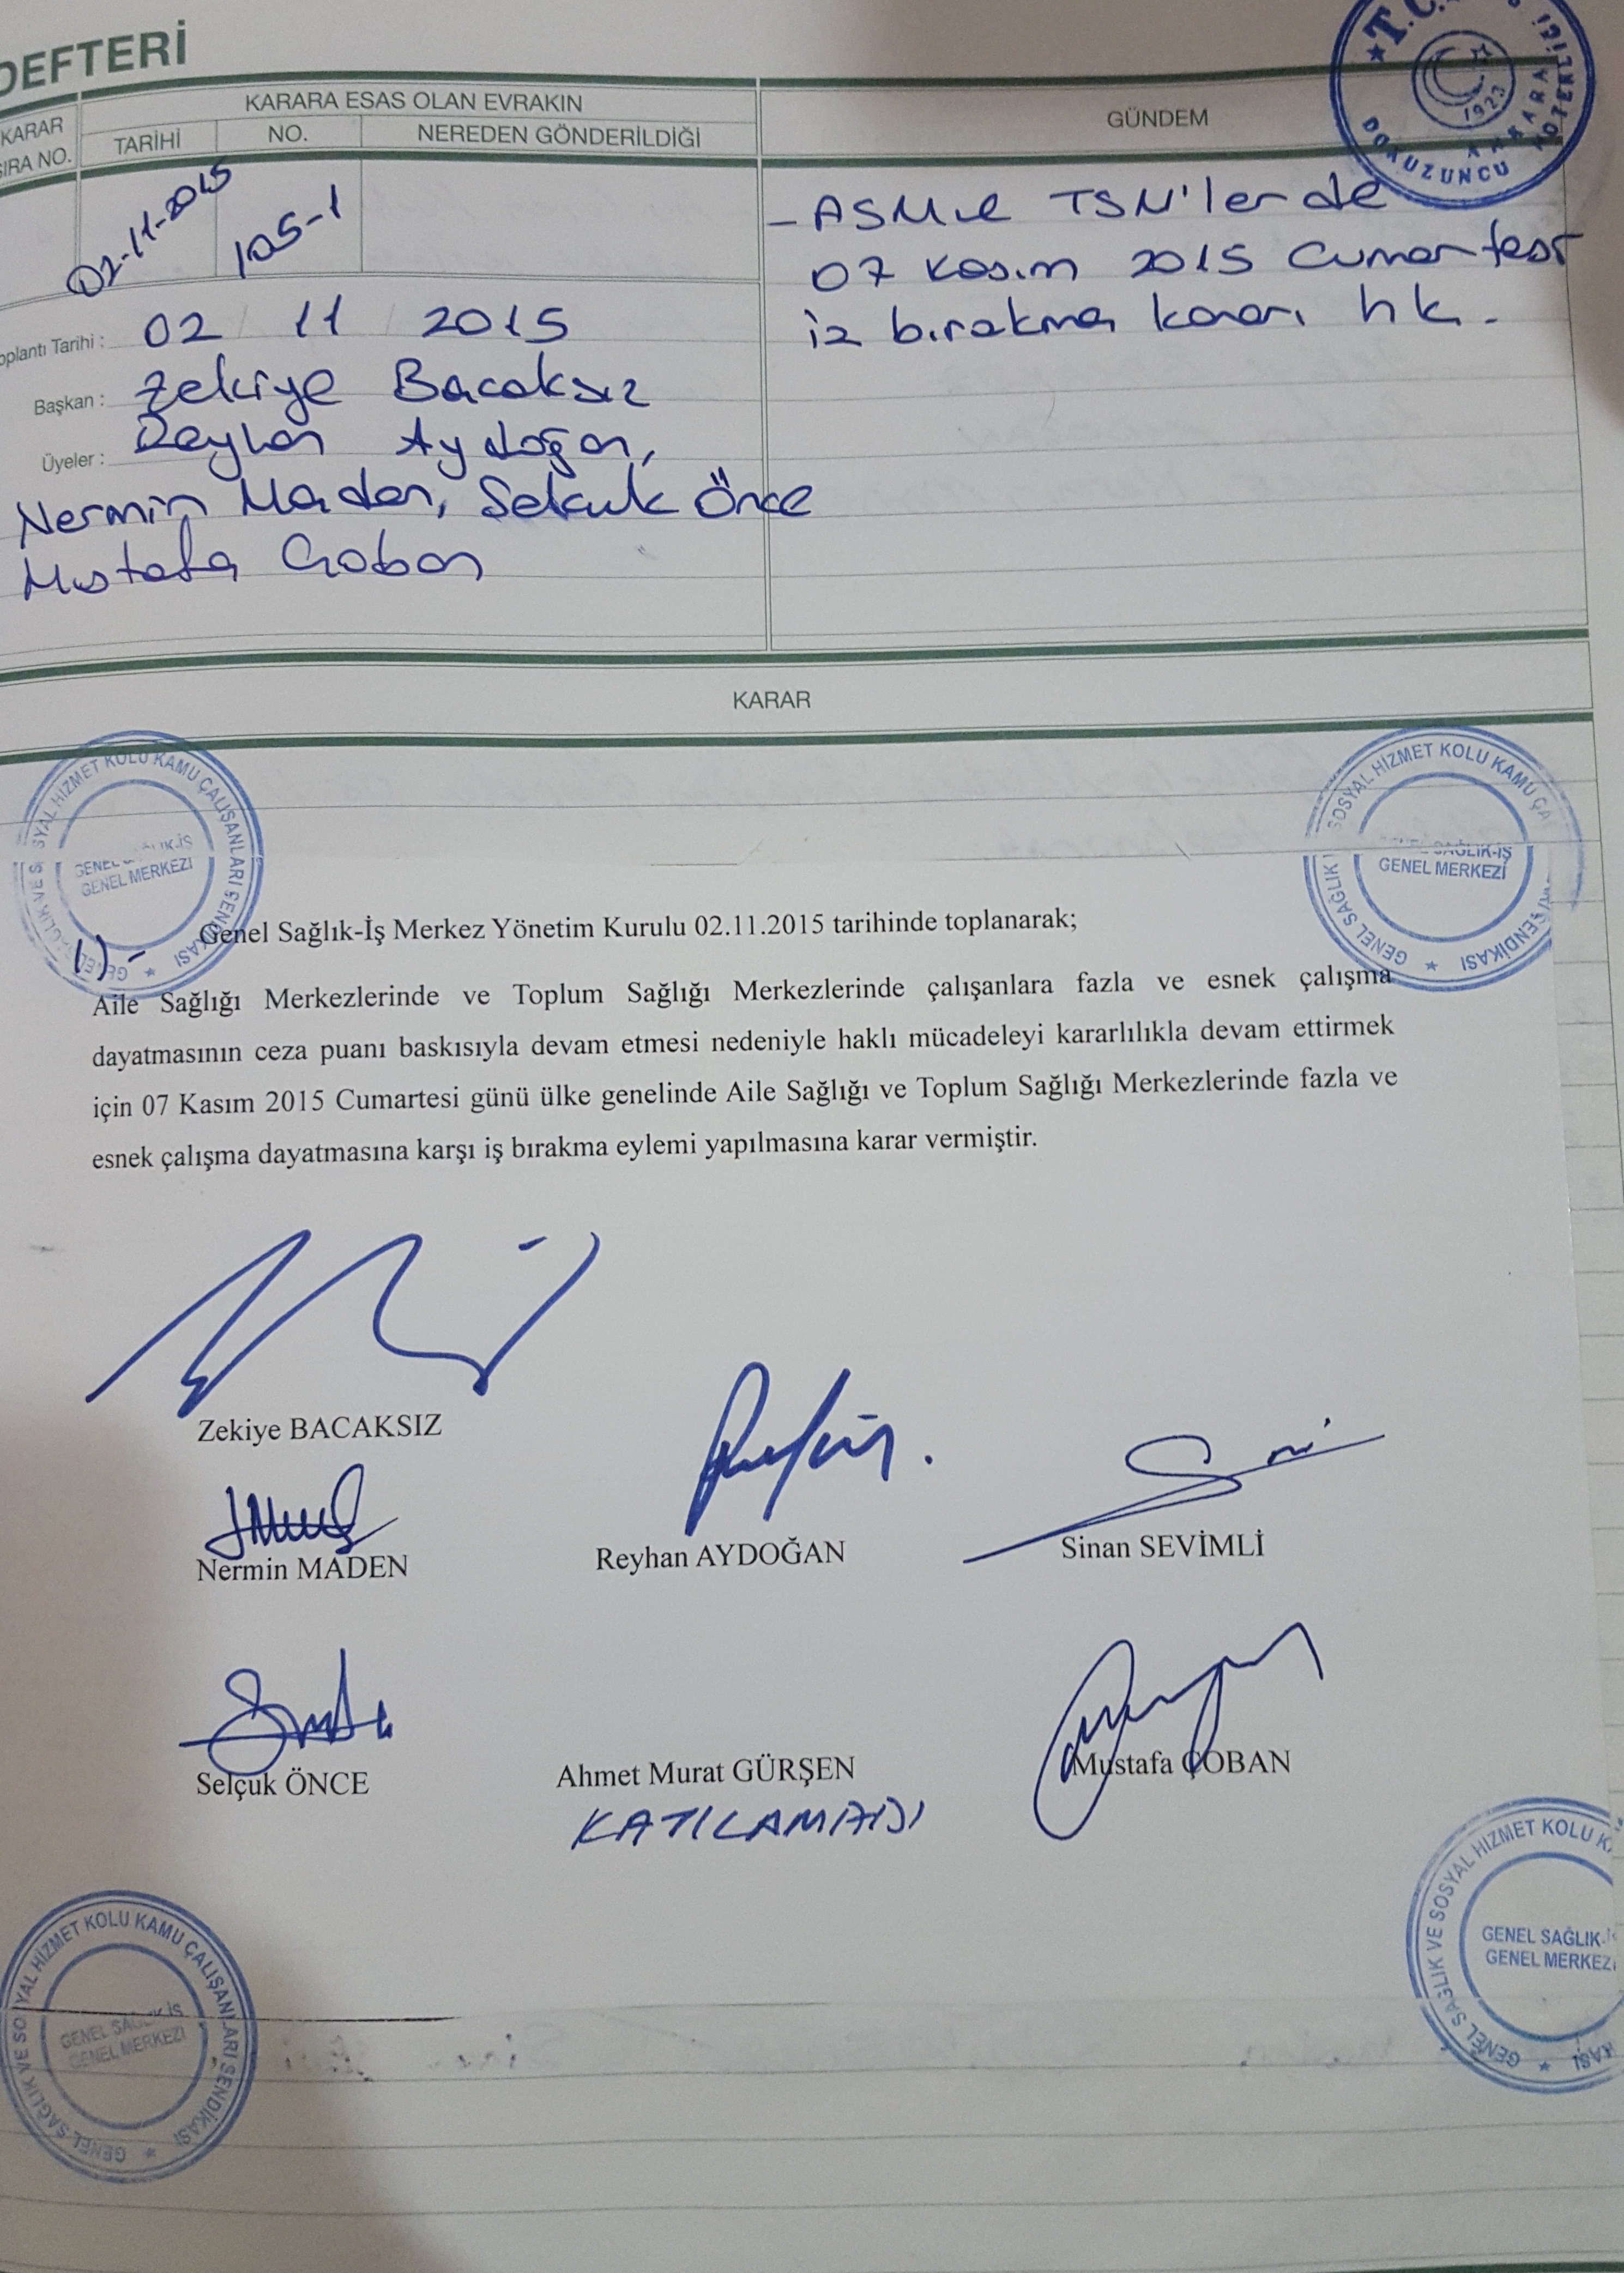 DEFTERİ
KARAR
SIRA NO.
KARARA ESAS OLAN EVRAKIN
TARİHİ
NO.
NEREDEN GÖNDERİLDİĞİ
GÜNDEM
T.C.
1923
ANKARA
DOKUZUNCU
NOTERLİĞİ
02-11-2015
105-1
- ASM ve TSM'lerde
07 Kasım 2015 Cumartesi
iş bırakma kararı hk.
Toplantı Tarihi : 02 11 2015
Başkan : Zekiye Bacaksız
Üyeler : Reyhan Aydoğan,
Nermin Maden, Selçuk Önce
Mustafa Çoban
KARAR
GENEL SAĞLIK VE SOSYAL HİZMET KOLU KAMU ÇALIŞANLARI SENDİKASI
GENEL MERKEZİ
SOSYAL HİZMET KOLU KAMU ÇA
SENDİKASI
GENEL SAĞLIK
SAĞLIK-İŞ
GENEL MERKEZİ
1)- Genel Sağlık-İş Merkez Yönetim Kurulu 02.11.2015 tarihinde toplanarak;
Aile Sağlığı Merkezlerinde ve Toplum Sağlığı Merkezlerinde çalışanlara fazla ve esnek çalışma
dayatmasının ceza puanı baskısıyla devam etmesi nedeniyle haklı mücadeleyi kararlılıkla devam ettirmek
için 07 Kasım 2015 Cumartesi günü ülke genelinde Aile Sağlığı ve Toplum Sağlığı Merkezlerinde fazla ve
esnek çalışma dayatmasına karşı iş bırakma eylemi yapılmasına karar vermiştir.
Zekiye BACAKSIZ
Nermin MADEN
Reyhan AYDOĞAN
Sinan SEVİMLİ
Selçuk ÖNCE
Ahmet Murat GÜRŞEN
Mustafa ÇOBAN
KATILAMADI
GENEL SAĞLIK VE SOSYAL HİZMET KOLU KAMU ÇALIŞANLARI SENDİKASI
GENEL SAĞLIK-İŞ
GENEL MERKEZİ
GENEL SAĞLIK VE SOSYAL HİZMET KOLU
GENEL SAĞLIK-İŞ
GENEL MERKEZİ